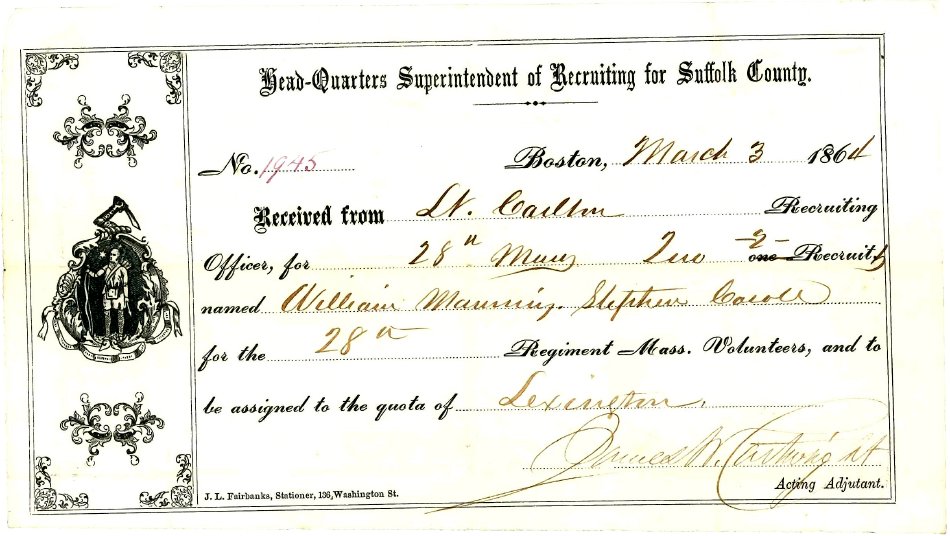 Head-Quarters Superintendent of Recruiting for Suffolk County.
No. 1945 Boston, March 3 1864
Received from Lt. Carlton Recruiting
Officer, for 28th Mass Two -2- one Recruits
named William Manning. Stephen Caroll
for the 28th Regiment Mass. Volunteers, and to
be assigned to the quota of Lexington.
James W. Cartwright
Acting Adjutant.
J. L. Fairbanks, Stationer, 136, Washington St.